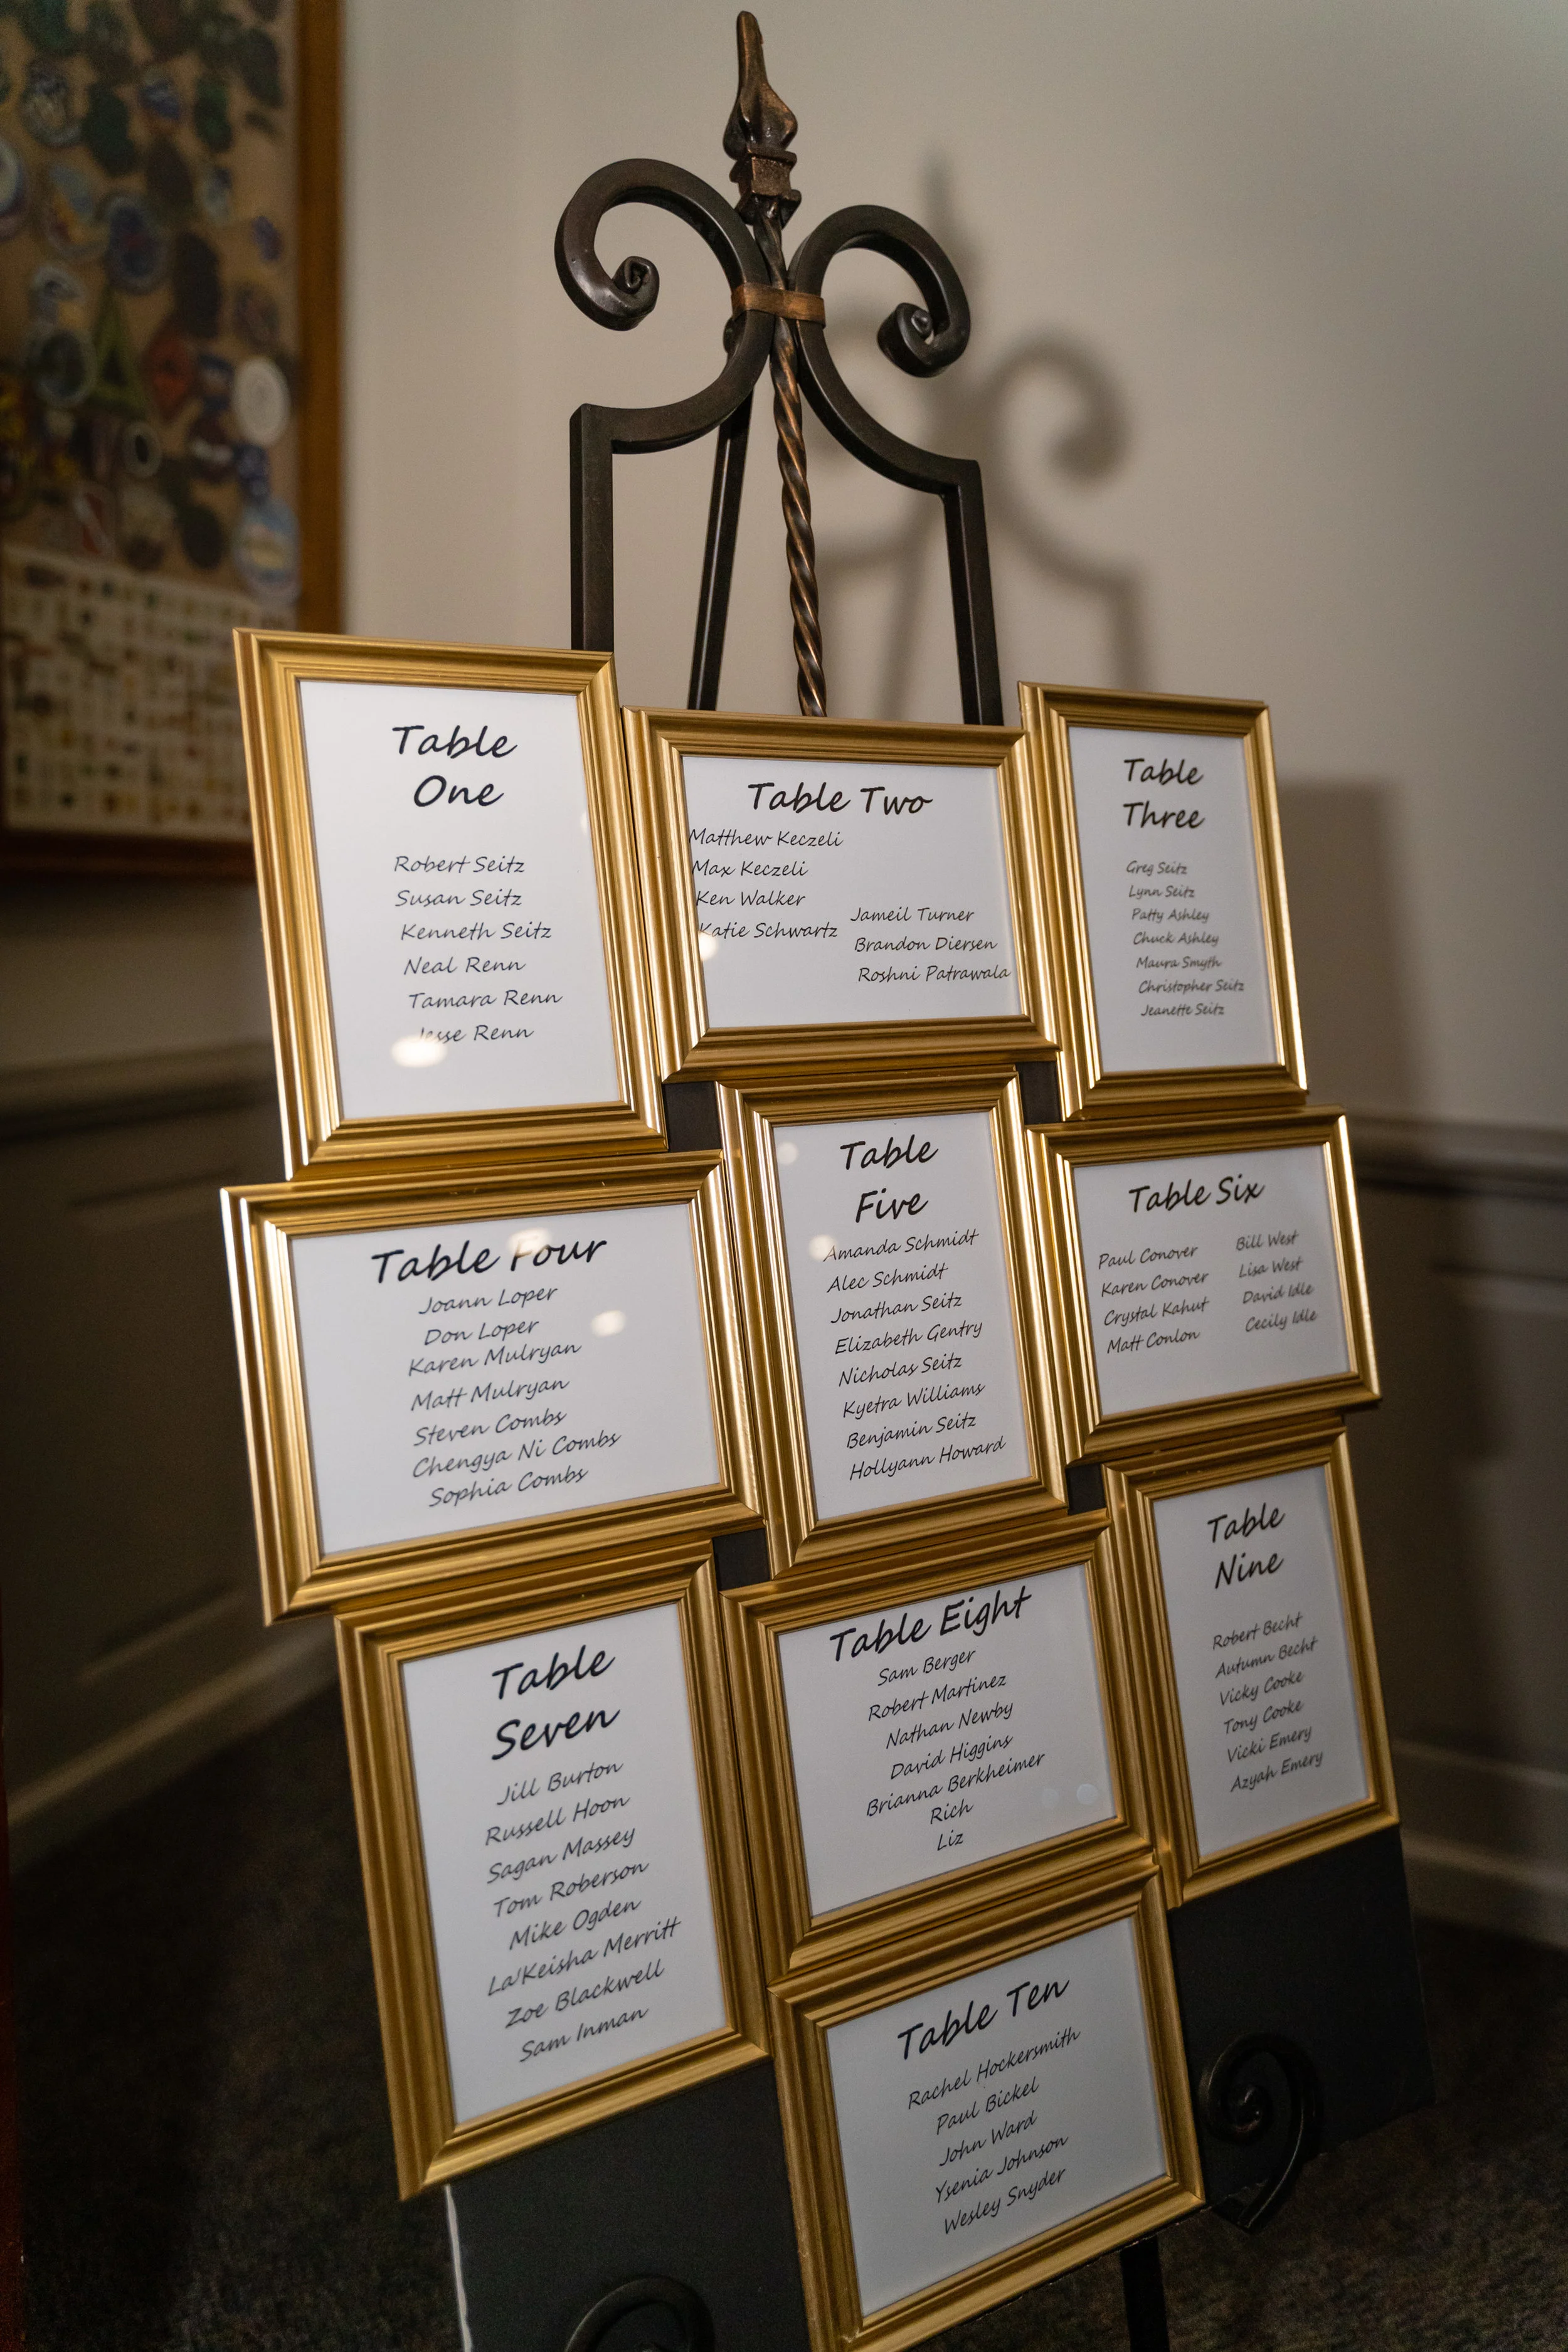 Table
One
Robert Seitz
Susan Seitz
Kenneth Seitz
Neal Renn
Tamara Renn
Jesse Renn
Table Two
Matthew Keczeli
Max Keczeli
Ken Walker
Katie Schwartz
Jameil Turner
Brandon Diersen
Roshni Patrawala
Table
Three
Greg Seitz
Lynn Seitz
Patty Ashley
Chuck Ashley
Maura Smyth
Christopher Seitz
Jeanette Seitz
Table Four
Joann Loper
Don Loper
Karen Mulryan
Matt Mulryan
Steven Combs
Chengya Ni Combs
Sophia Combs
Table
Five
Amanda Schmidt
Alec Schmidt
Jonathan Seitz
Elizabeth Gentry
Nicholas Seitz
Kyetra Williams
Benjamin Seitz
Hollyann Howard
Table Six
Paul Conover
Karen Conover
Crystal Kahut
Matt Conlon
Bill West
Lisa West
David Idle
Cecily Idle
Table
Seven
Jill Burton
Russell Hoon
Sagan Massey
Tom Roberson
Mike Ogden
La'Keisha Merritt
Zoe Blackwell
Sam Inman
Table Eight
Sam Berger
Robert Martinez
Nathan Newby
David Higgins
Brianna Berkheimer
Rich
Liz
Table
Nine
Robert Becht
Autumn Becht
Vicky Cooke
Tony Cooke
Vicki Emery
Azyah Emery
Table Ten
Rachel Hockersmith
Paul Bickel
John Ward
Ysenia Johnson
Wesley Snyder